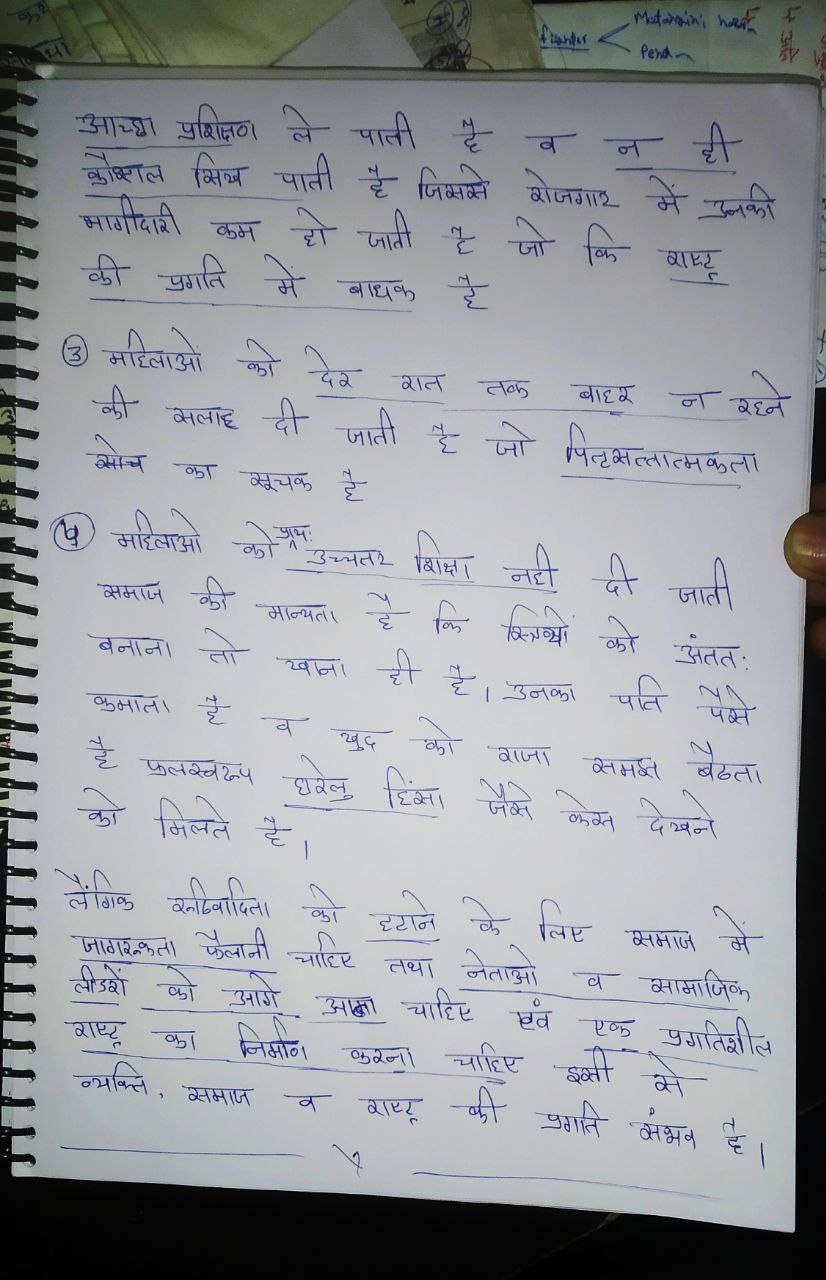 Matangini hazra
founder
Pend
आच्छा प्रशिक्षण ले पाती है व न ही
कौशल सिख पाती है जिससे रोजगार में उनकी
भागीदारी कम हो जाती है जो कि राष्ट्र
की प्रगति में बाधक है
③ महिलाओं को देर रात तक बाहर न रहने
की सलाह दी जाती है जो पितृसत्तात्मकता
सोच का सूचक है
④ महिलाओ को प्रायः उच्चतर शिक्षा नही दी जाती
समाज की मान्यता है कि स्त्रियों को अंततः
बनाना तो खाना ही है। उनका पति पैसे
कमाता है व खुद को राजा समझ बैठता
है फलस्वरूप घरेलु हिंसा जैसे केस देखने
को मिलते है।
लैंगिक रूढिवादिता को हटाने के लिए समाज में
जागरूकता फैलानी चाहिए तथा नेताओ व सामाजिक
लीडरों को आगे आना चाहिए एवं एक प्रगतिशील
राष्ट्र का निर्माण करना चाहिए इसी से
व्यक्ति, समाज व राष्ट्र की प्रगति संभव है।